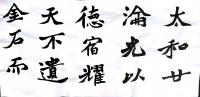 金石而
天不遺
德宿耀
淪光以
太和廿